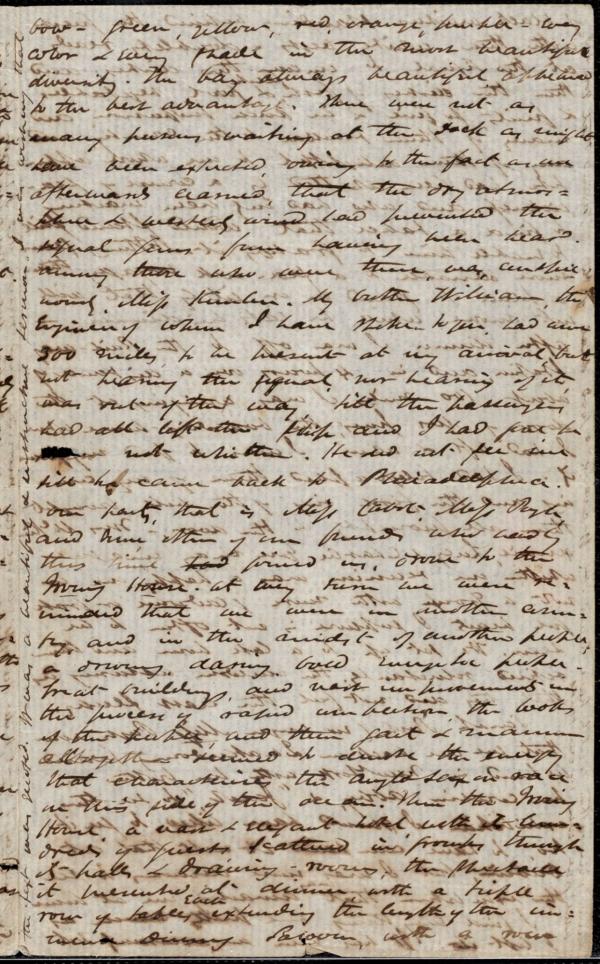 bow - green, yellow, red, orange, purple - every
color & every shade in the most beautiful
diversity the bay always beautiful appeared
to the best advantage. There were not as
many persons waiting at the dock as might
have been expected, owing to the fact as we
afterwards learned, that the dry atmos=
phere & westerly wind had prevented the
signal guns from having been heard.
among those who were there, was, conspic=
uously, Miss. My brother William, the
Engineer of whom I have spoken to you, had come
300 miles, to be present at my arrival, but
not hearing the signal, nor hearing of it
was out of the way, till the passengers
had all left the ship and I had gone he
not whither. He did not see me
till he came back to Philadelphia.
our party, that is Miss Cabot, Miss
and nine other of our friends who
this time had joined us, drove to the
Irving House. at every turn we were re=
minded that we were in another coun=
try, and in the midst of another people,
a driving, daring, bold, energetic people.
Great buildings, and vast improvements in
the process of rapid completion, the looks
of the people, and their gait & manner
altogether seemed to denote the energy
that characterises the anglo saxon race
on this side of the ocean. Then the Irving
House a vast & elegant hotel with its hun=
dreds of guests scattered in groups through
its halls & drawing-rooms, the spectacle
it presented at dinner with a triple
row of tables Each extending the length of the im=
mense dining Saloon, with a row